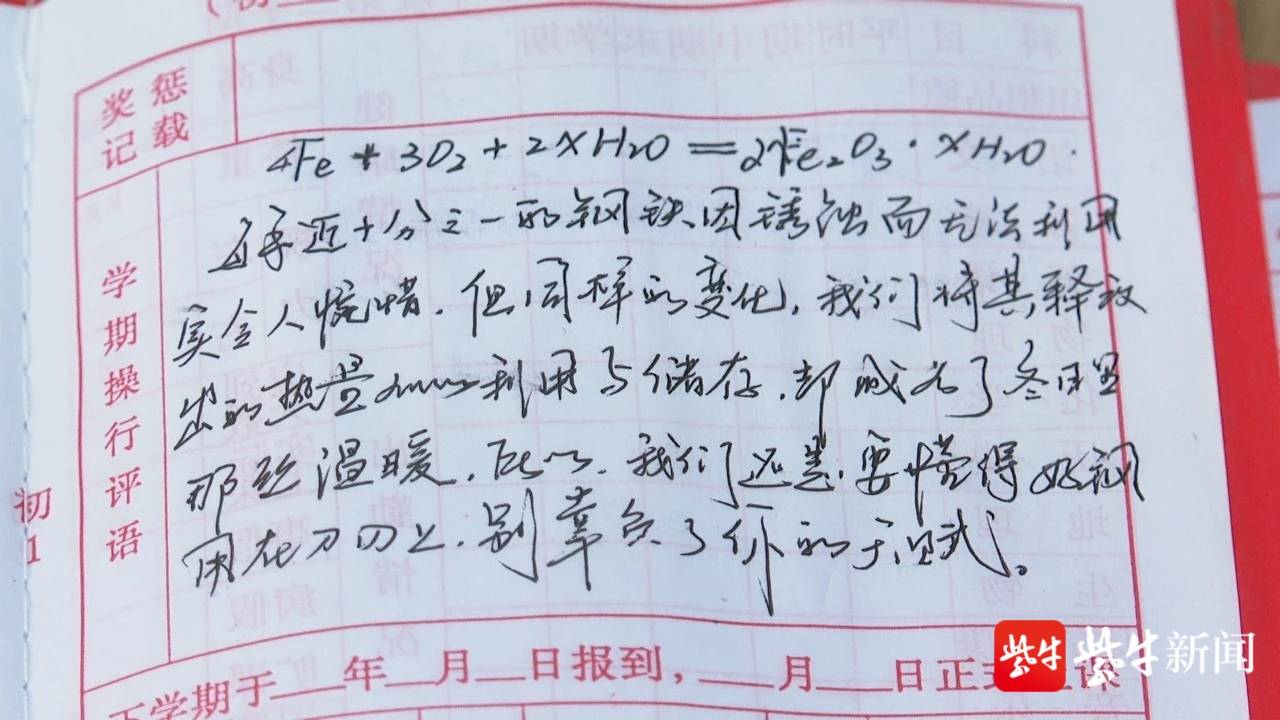 奖惩
记载
4Fe + 3O₂ + 2XH₂O = 2Fe₂O₃·XH₂O.
每年近十分之一的钢铁因锈蚀而无法利用
实令人惋惜.但同样的变化,我们将其释放
出的热量加以利用与储存,却成为了冬日里
那些温暖.所以,我们还是要懂得好钢
用在刀刃上.别辜负了你的方程式。
学期操行评语
初
1
下学期于___年___月___日报到,___月___日正式上课
紫牛 紫牛新闻